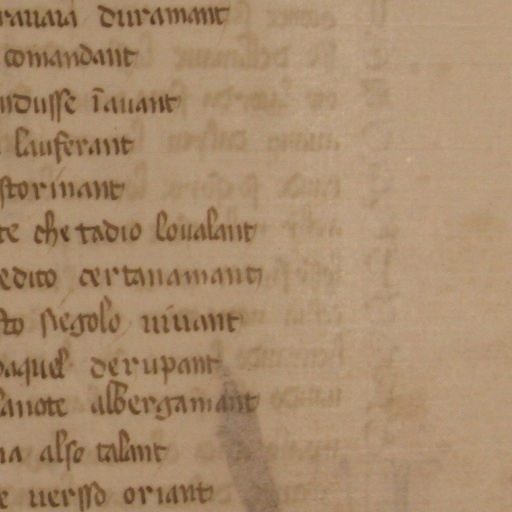 rauaia duramant
comandant
ndusse īauant
lauferant
storinant
te che tadio loualant
edito certanamant
sto siegolo uiuant
paquel derupant
lanote albergamant
na also talant
e uersso oriant